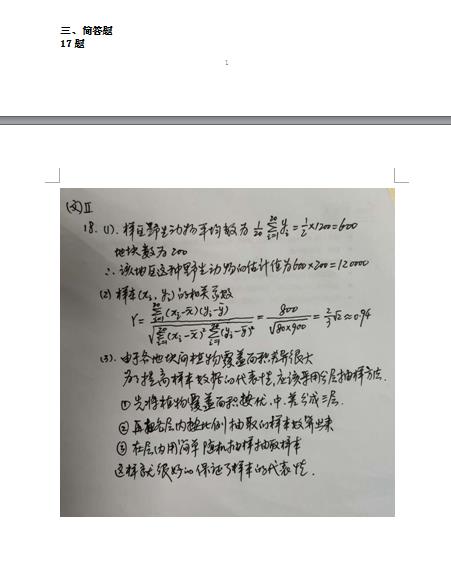 三、简答题
17题
1
(文)Ⅱ
18. (1). 样区野生动物平均数为 1/20 ∑_{i=1}^{20} y_i = 1/2 × 1200 = 600
地块数为 200
∴ 该地区这种野生动物的估计值为 600×200 = 120000
(2) 样本 (x_i, y_i) 的相关系数
r = ∑_{i=1}^{20} (x_i - x̄)(y_i - ȳ) / √(∑_{i=1}^{20} (x_i - x̄)² ∑_{i=1}^{20} (y_i - ȳ)²) = 800 / √(80×900) = 2/3 √2 ≈ 0.94
(3). 由于各地块间植物覆盖面积差异很大
为了提高样本数据的代表性, 应该采用分层抽样方法.
① 先将植物覆盖面积按优、中、差分成三层.
② 再在各层内按比例抽取的样本数算出来
③ 在层内用简单随机抽样抽取样本
这样就很好的保证了样本的代表性.